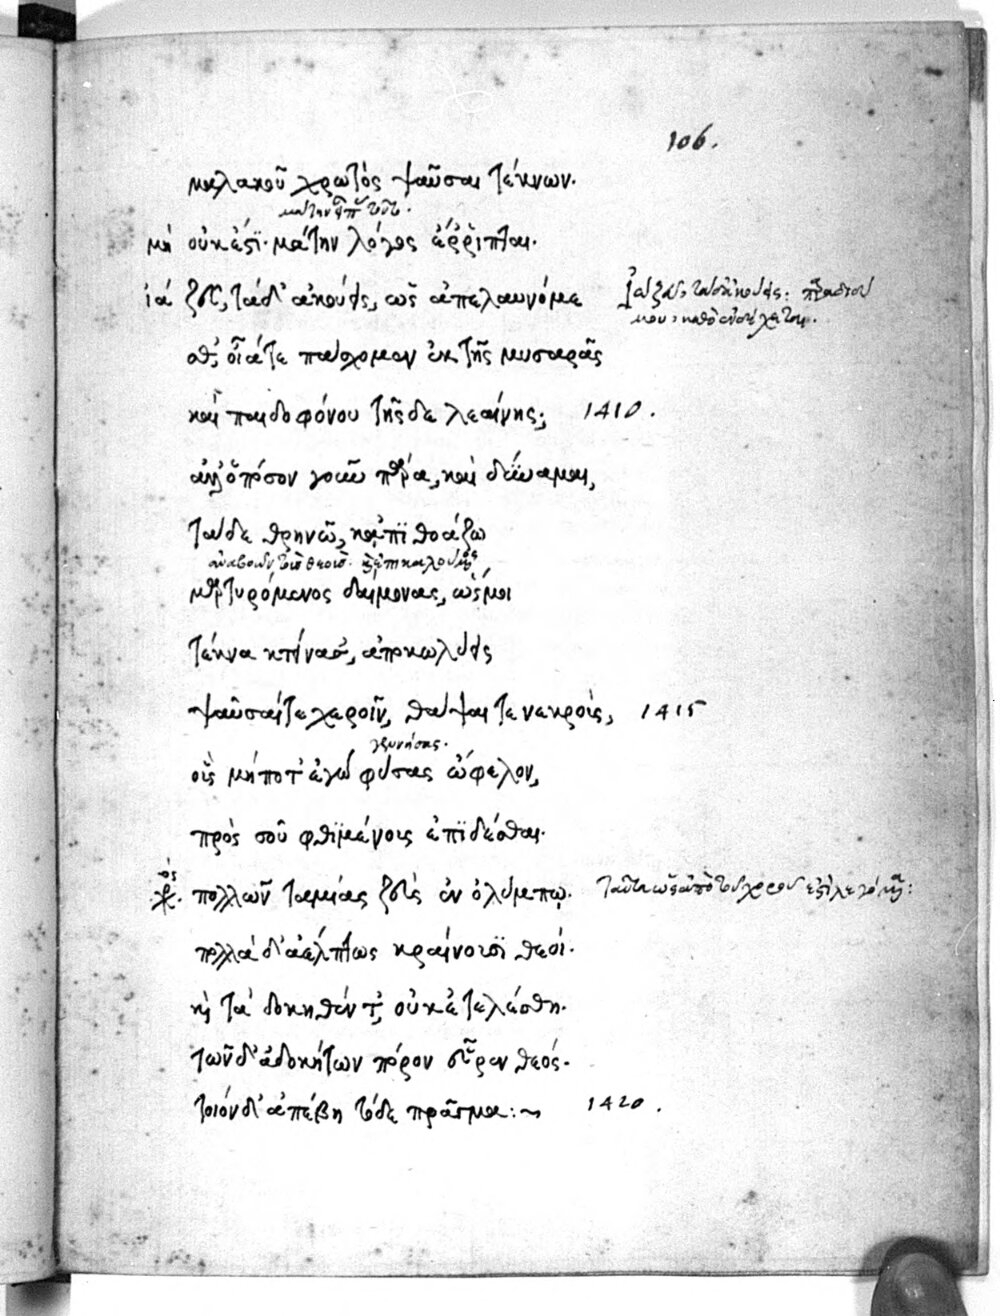 106.
μαλακοῦ χρωτὸς ψαῦσαι τέκνων.
μάτην
μη οὐκ ἔστι· μάτην λόγος ἔρριπται.
ια ζεῦ, τάδ' ἀκούεις, ὡς ἀπελαυνόμε
ὦ ζεῦ, ταῦτα ἀκούεις:
μου,
θ', οἷά τε πάσχομεν ἐκ τῆς μυσαρᾶς
καὶ παιδοφόνου τῆσδε λεαίνης; 1410.
ἀλλ' ὁπόσον γοῦν πάρα, καὶ δύναμαι,
τάδε θρηνῶ, κἀπιθοάζω
ἀναβοῶν τοῖς θεοῖς. ἐπικαλούμενος
μαρτυρόμενος δαίμονας, ὥς μοι
τέκνα κτείνασ', ἀποκωλύεις
ψαῦσαί τε χεροῖν, θάψαι τε νεκρούς, 1415
γεννήσας.
οὓς μήποτ' ἐγὼ φύσας ὤφελον,
πρὸς σοῦ φθιμένους ἐπιδέσθαι.
χορός. πολλῶν ταμίας ζεὺς ἐν ὀλύμπῳ.
ταῦτα ὡς ἀπὸ τοῦ χοροῦ
πολλὰ δ' ἀέλπτως κραίνουσι θεοί.
καὶ τὰ δοκηθέντ', οὐκ ἐτελέσθη.
τῶν δ' ἀδοκήτων πόρον εὗρεν θεός.
τοιόνδ' ἀπέβη τόδε πρᾶγμα:~ 1420.